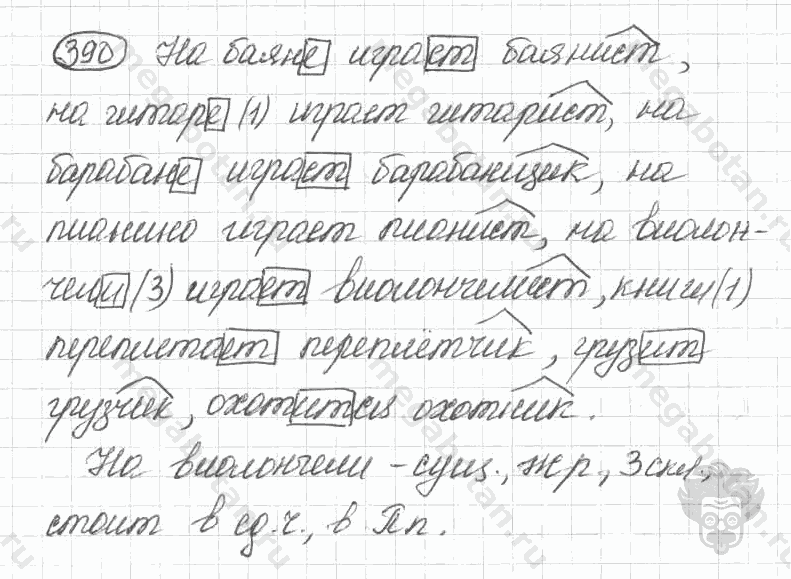 390 На баяне играет баянист,
на гитаре (1) играет гитарист, на
барабане играет барабанщик, на
пианино играет пианист, на виолон-
чели (3) играет виолончелист, книги (1)
переплетает переплётчик, грузит
грузчик, охотится охотник.
На виолончели - сущ., ж.р., 3 скл.,
стоит в ед.ч., в П.п.
megabotan.ru